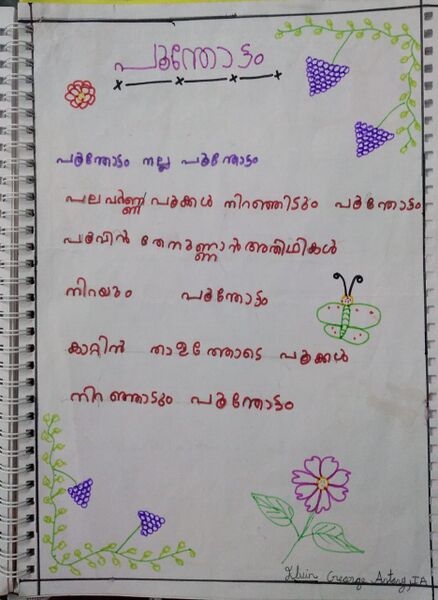 പൂന്തോട്ടം
പൂന്തോട്ടം നല്ല പൂന്തോട്ടം
പല വർണ്ണ പൂക്കൾ നിറഞ്ഞിടും പൂന്തോട്ടം
പൂവിൻ തേനുണ്ണാൻ അതിഥികൾ
നിറയും പൂന്തോട്ടം
കാറ്റിൻ താളത്തോടെ പൂക്കൾ
നിറഞ്ഞാടും പൂന്തോട്ടം
George Antony, IA